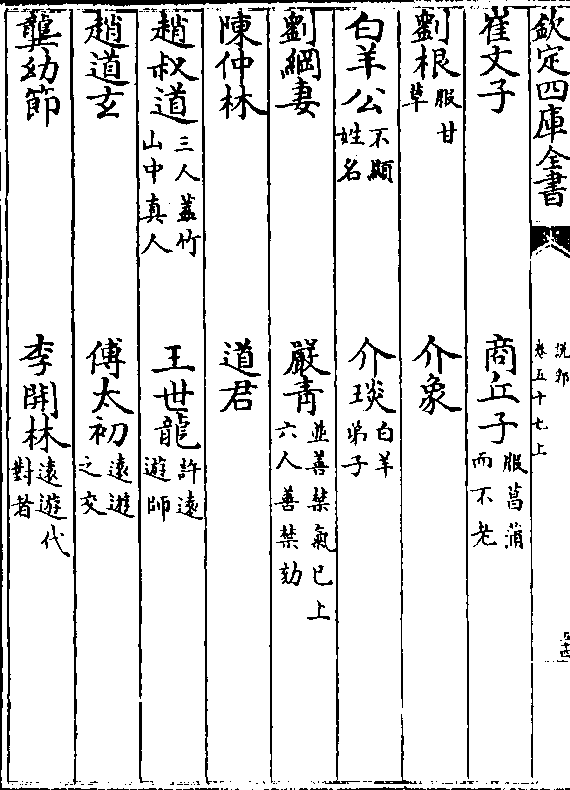 欽定四庫全書
說郛
卷五十七上
崔文子
商丘子
服菖蒲
而不老
劉根
服甘
草
介象
白羊公
不顯
姓名
介琰
白羊
弟子
劉綱妻
嚴青
並善禁氣已上
六人善禁劾
陳仲林
道君
趙叔道
三人蓋竹
山中真人
王世龍
許遠
遊師
趙道玄
傅太初
遠遊
之交
龔幼節
李開林
遠遊代
對者